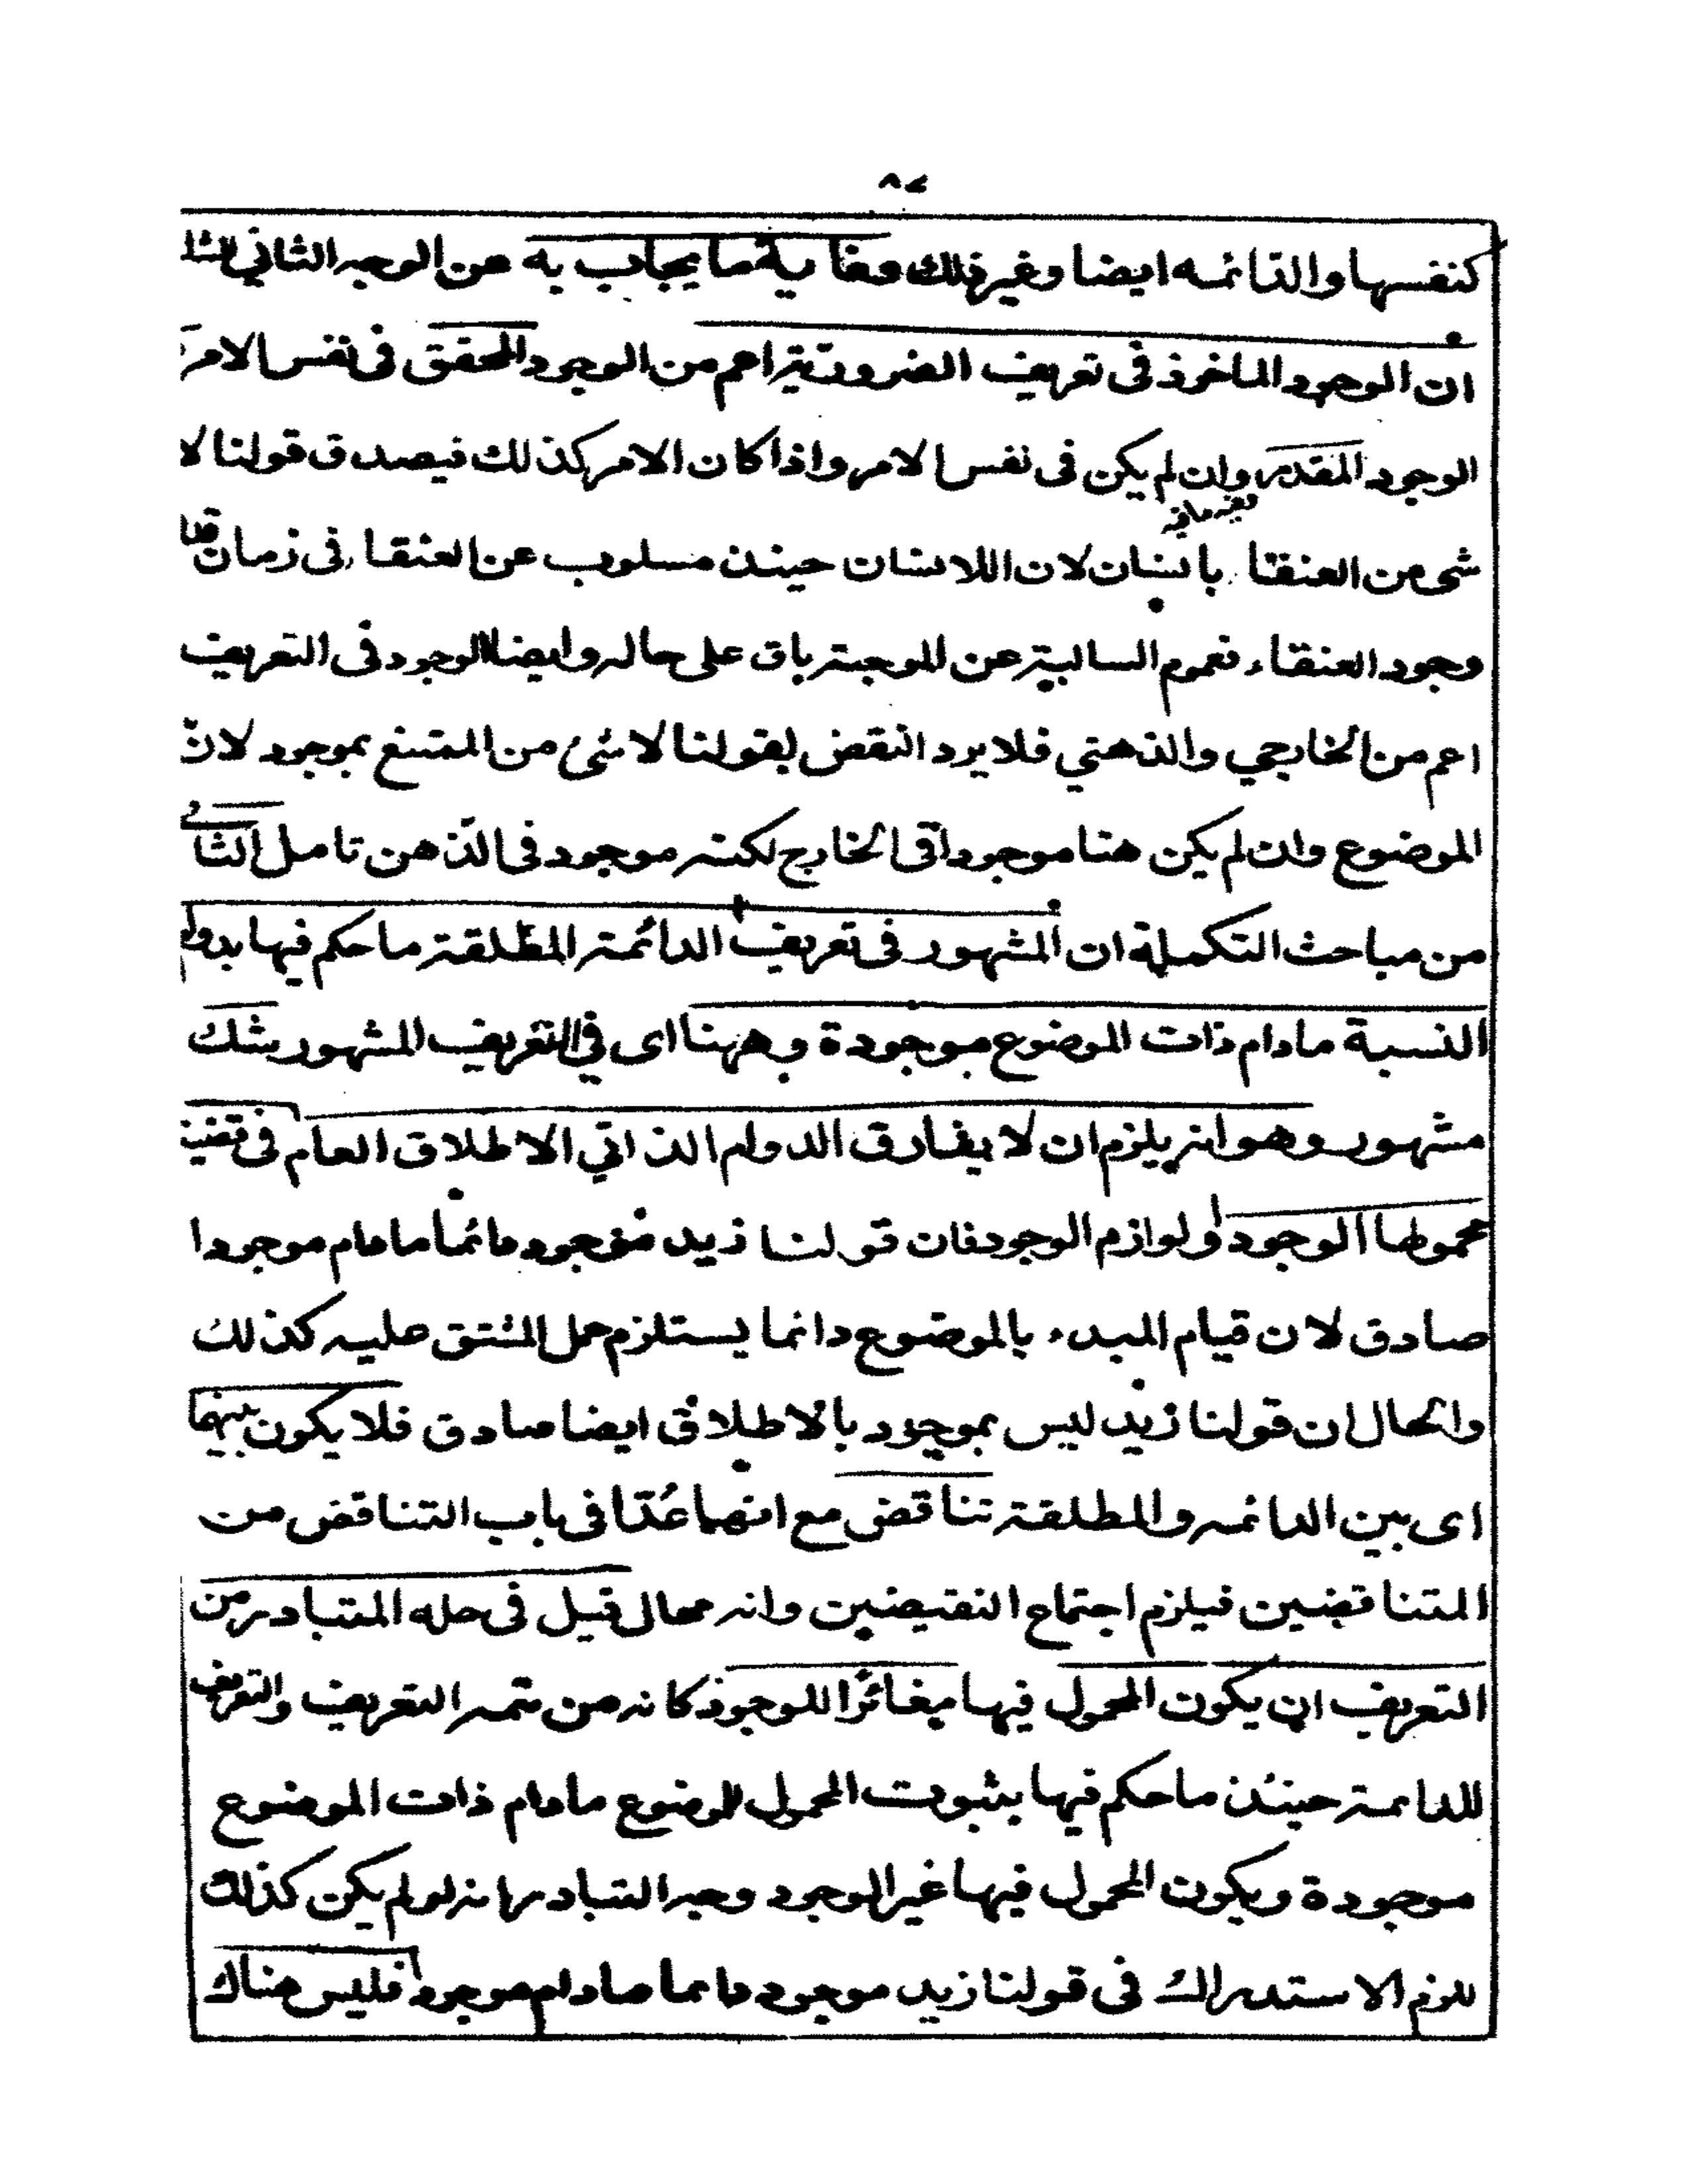 ٨٤
كنفسها والدائمه ايضا وغير ذلك وغاية ما يجاب به عن الوجه الثاني
ان الوجود الماخوذ فى تعريف الضرورية اعم من الوجود المحقق فى نفس الامر
الوجود المقدر وان لم يكن فى نفس الامر واذا كان الامر كذلك فيصدق قولنا لا
شى من العنقا بانسان لان اللانسان حينئذ مسلوب عن العنقا فى زمان
وجود العنقاء فعموم السالبة عن الموجبة باق على حاله وايضا الوجود فى التعريف
اعم من الخارجي والذهني فلا يرد النقض بقولنا لا شئ من الممتنع بموجود لانّ
الموضوع وان لم يكن هنا موجودا فى الخارج لكنه موجود فى الذهن تامل الثا
من مباحث التكملة ان المشهور فى تعريف الدائمة المطلقة ما حكم فيها بدوام
النسبة مادام ذات الموضوع موجودة وههنا اى في التعريف المشهور شك
مشهور وهو انه يلزم ان لا يفارق الدوام الذاتي الاطلاق العام فى قضية
محمولها الوجود او لوازم الوجود فان قولنا زيد موجود دائما مادام موجودا
صادق لان قيام المبدء بالموضوع دائما يستلزم حمل المشتق عليه كذلك
والحال ان قولنا زيد ليس بموجود بالاطلاق ايضا صادق فلا يكون بينهما
اى بين الدائمه والمطلقة تناقض مع انهما عُدّا فى باب التناقض من
المتناقضين فيلزم اجتماع النقيضين وانه محال قيل فى حله المتبادر من
التعريف ان يكون المحمول فيها مغائرا للوجود كانه من تتمه التعريف والتعريف
للدائمة حينئذ ما حكم فيها بثبوت المحمول للموضوع مادام ذات الموضوع
موجودة ويكون المحمول فيها غير الوجود وجه التبادر انه لو لم يكن كذلك
للزم الاستدراك فى قولنا زيد موجود دائما مادام موجودا فليس هناك